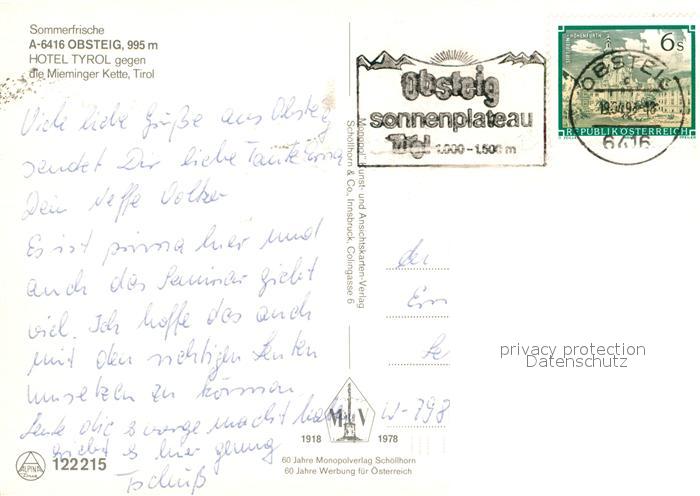 Sommerfrische
A-6416 OBSTEIG, 995 m
HOTEL TYROL gegen
die Mieminger Kette, Tirol
Viele liebe Grüße aus Obsteig
sendet Dir liebe Tante Erna
Dein Neffe Volker
Es ist prima hier und
auch das Seminar giebt
viel. Ich hoffe das auch
mit den richtigen Leuten
umsetzen zu können
Leute die sorge macht haben
giebt es hier genug
Tschüß
ALPINA
122215
Monopol Kunst- und Ansichtskarten-Verlag
Schöllhorn & Co., Innsbruck, Colingasse 6
Obsteig
sonnenplateau
Tirol 1.000 - 1.500 m
6 S
REPUBLIK ÖSTERREICH
OBSTEIG
6416
W-798
privacy protection
Datenschutz
M V
1918 1978
60 Jahre Monopolverlag Schöllhorn
60 Jahre Werbung für Österreich